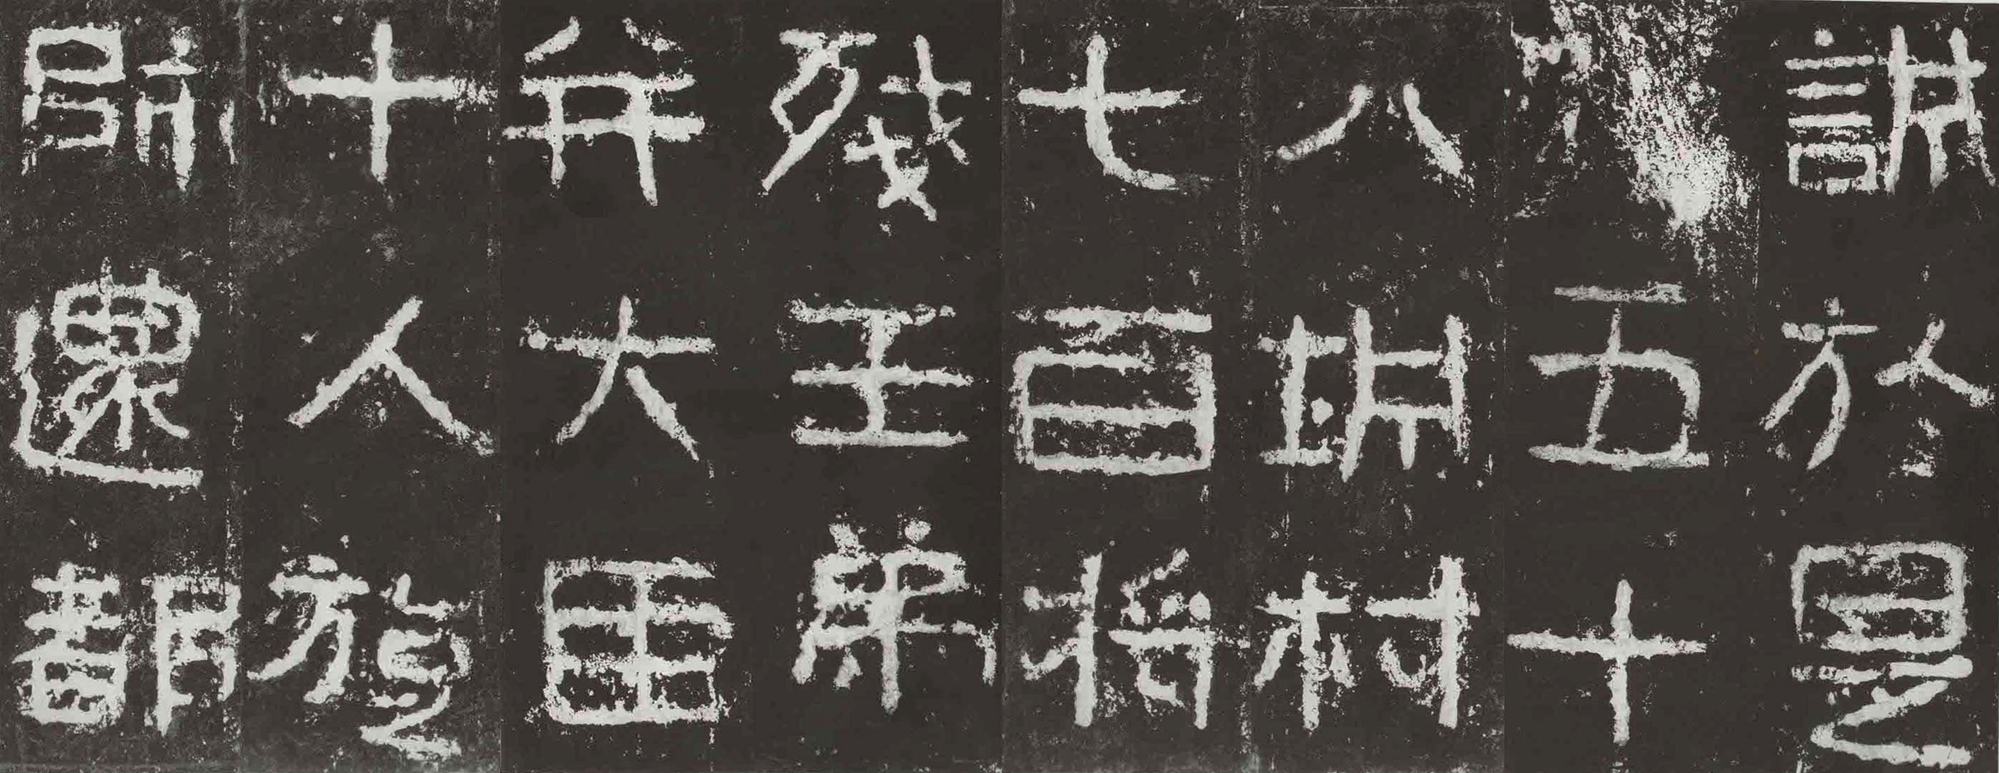 誠於是
五十
八城村
七百將
殘王弟
并大臣
十人旋
師還都